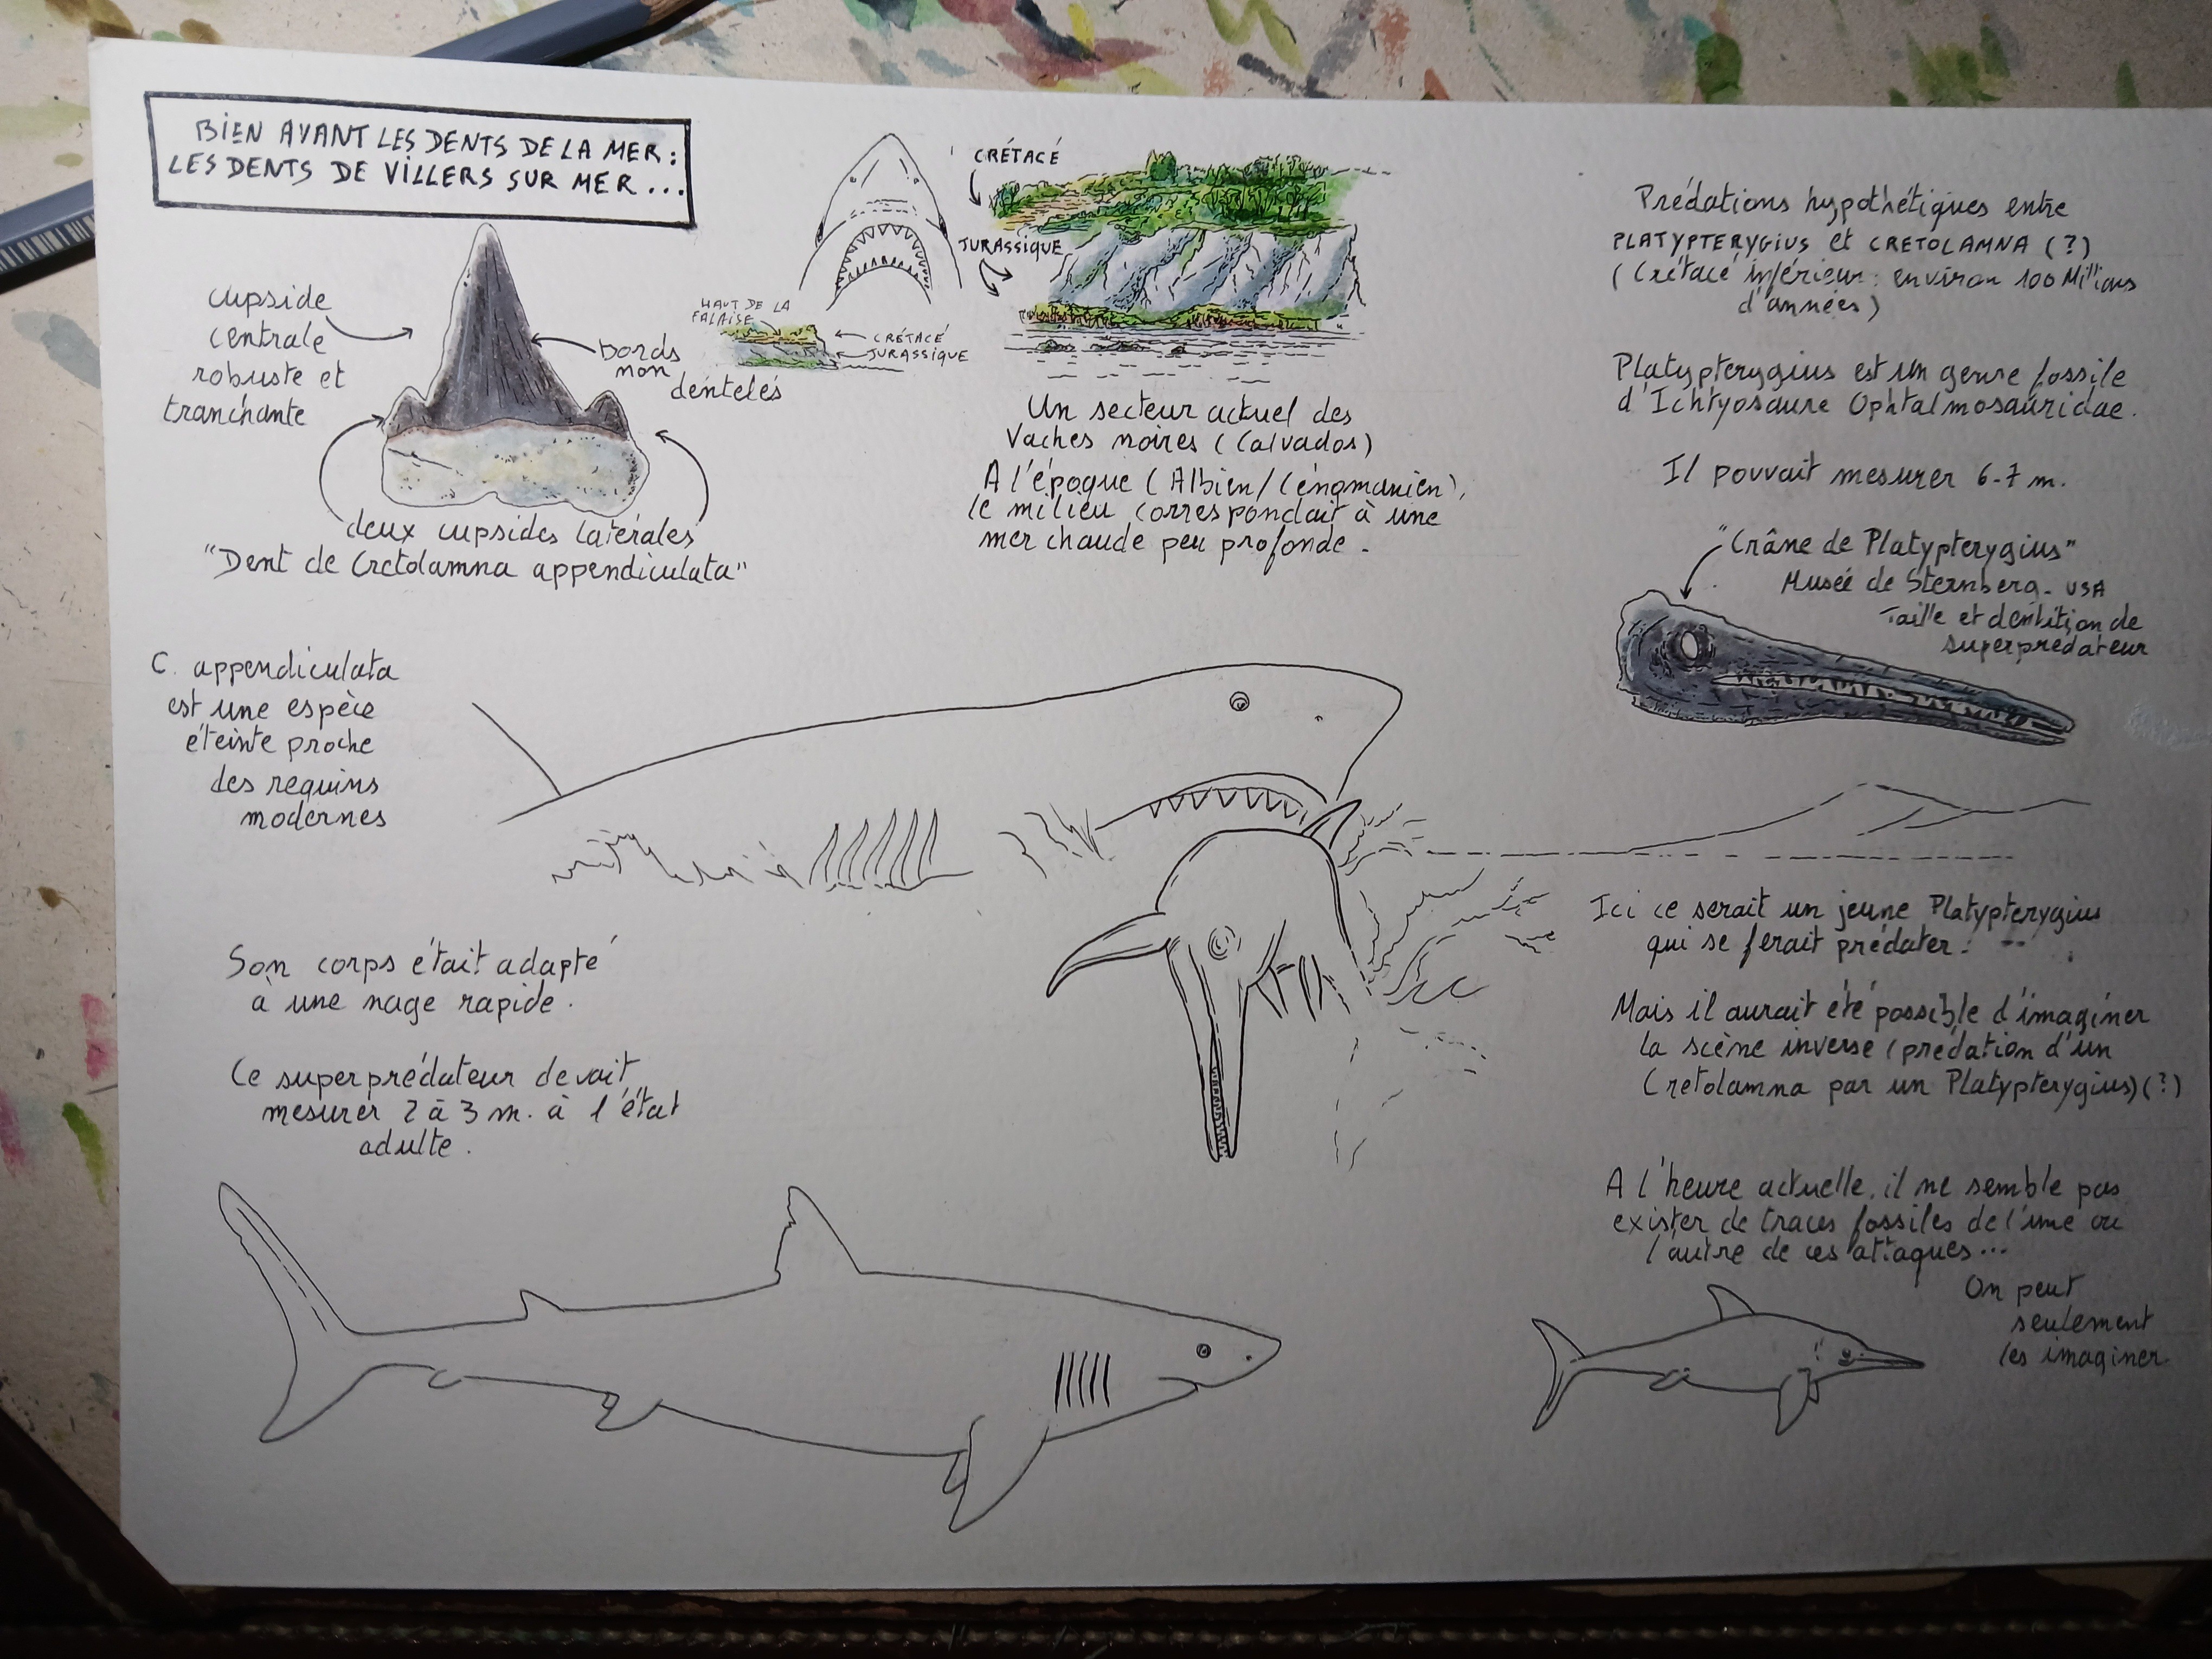 BIEN AVANT LES DENTS DE LA MER :
LES DENTS DE VILLERS SUR MER ...
cupside
centrale
robuste et
tranchante
bords
non
dentelés
deux cupsides latérales
"Dent de Cretolamna appendiculata"
CRÉTACÉ
JURASSIQUE
HAUT DE LA
FALAISE
CRÉTACÉ
JURASSIQUE
Un secteur actuel des
Vaches noires (Calvados)
A l'époque (Albien/Cénomanien),
le milieu correspondait à une
mer chaude peu profonde.
Prédations hypothétiques entre
PLATYPTERYGIUS et CRETOLAMNA (?)
(Crétacé inférieur : environ 100 Millions
d'années)
Platypterygius est un genre fossile
d'Ichtyosaure Ophtalmosauridae.
Il pouvait mesurer 6-7 m.
"Crâne de Platypterygius"
Musée de Sternberg - USA
Taille et dentition de
superprédateur
C. appendiculata
est une espèce
éteinte proche
des requins
modernes
Son corps était adapté
à une nage rapide.
Ce superprédateur devait
mesurer 2 à 3 m. à l'état
adulte.
Ici ce serait un jeune Platypterygius
qui se ferait prédater.
Mais il aurait été possible d'imaginer
la scène inverse (prédation d'un
Cretolamna par un Platypterygius) (?)
A l'heure actuelle, il ne semble pas
exister de traces fossiles de l'une ou
l'autre de ces attaques...
On peut
seulement
les imaginer